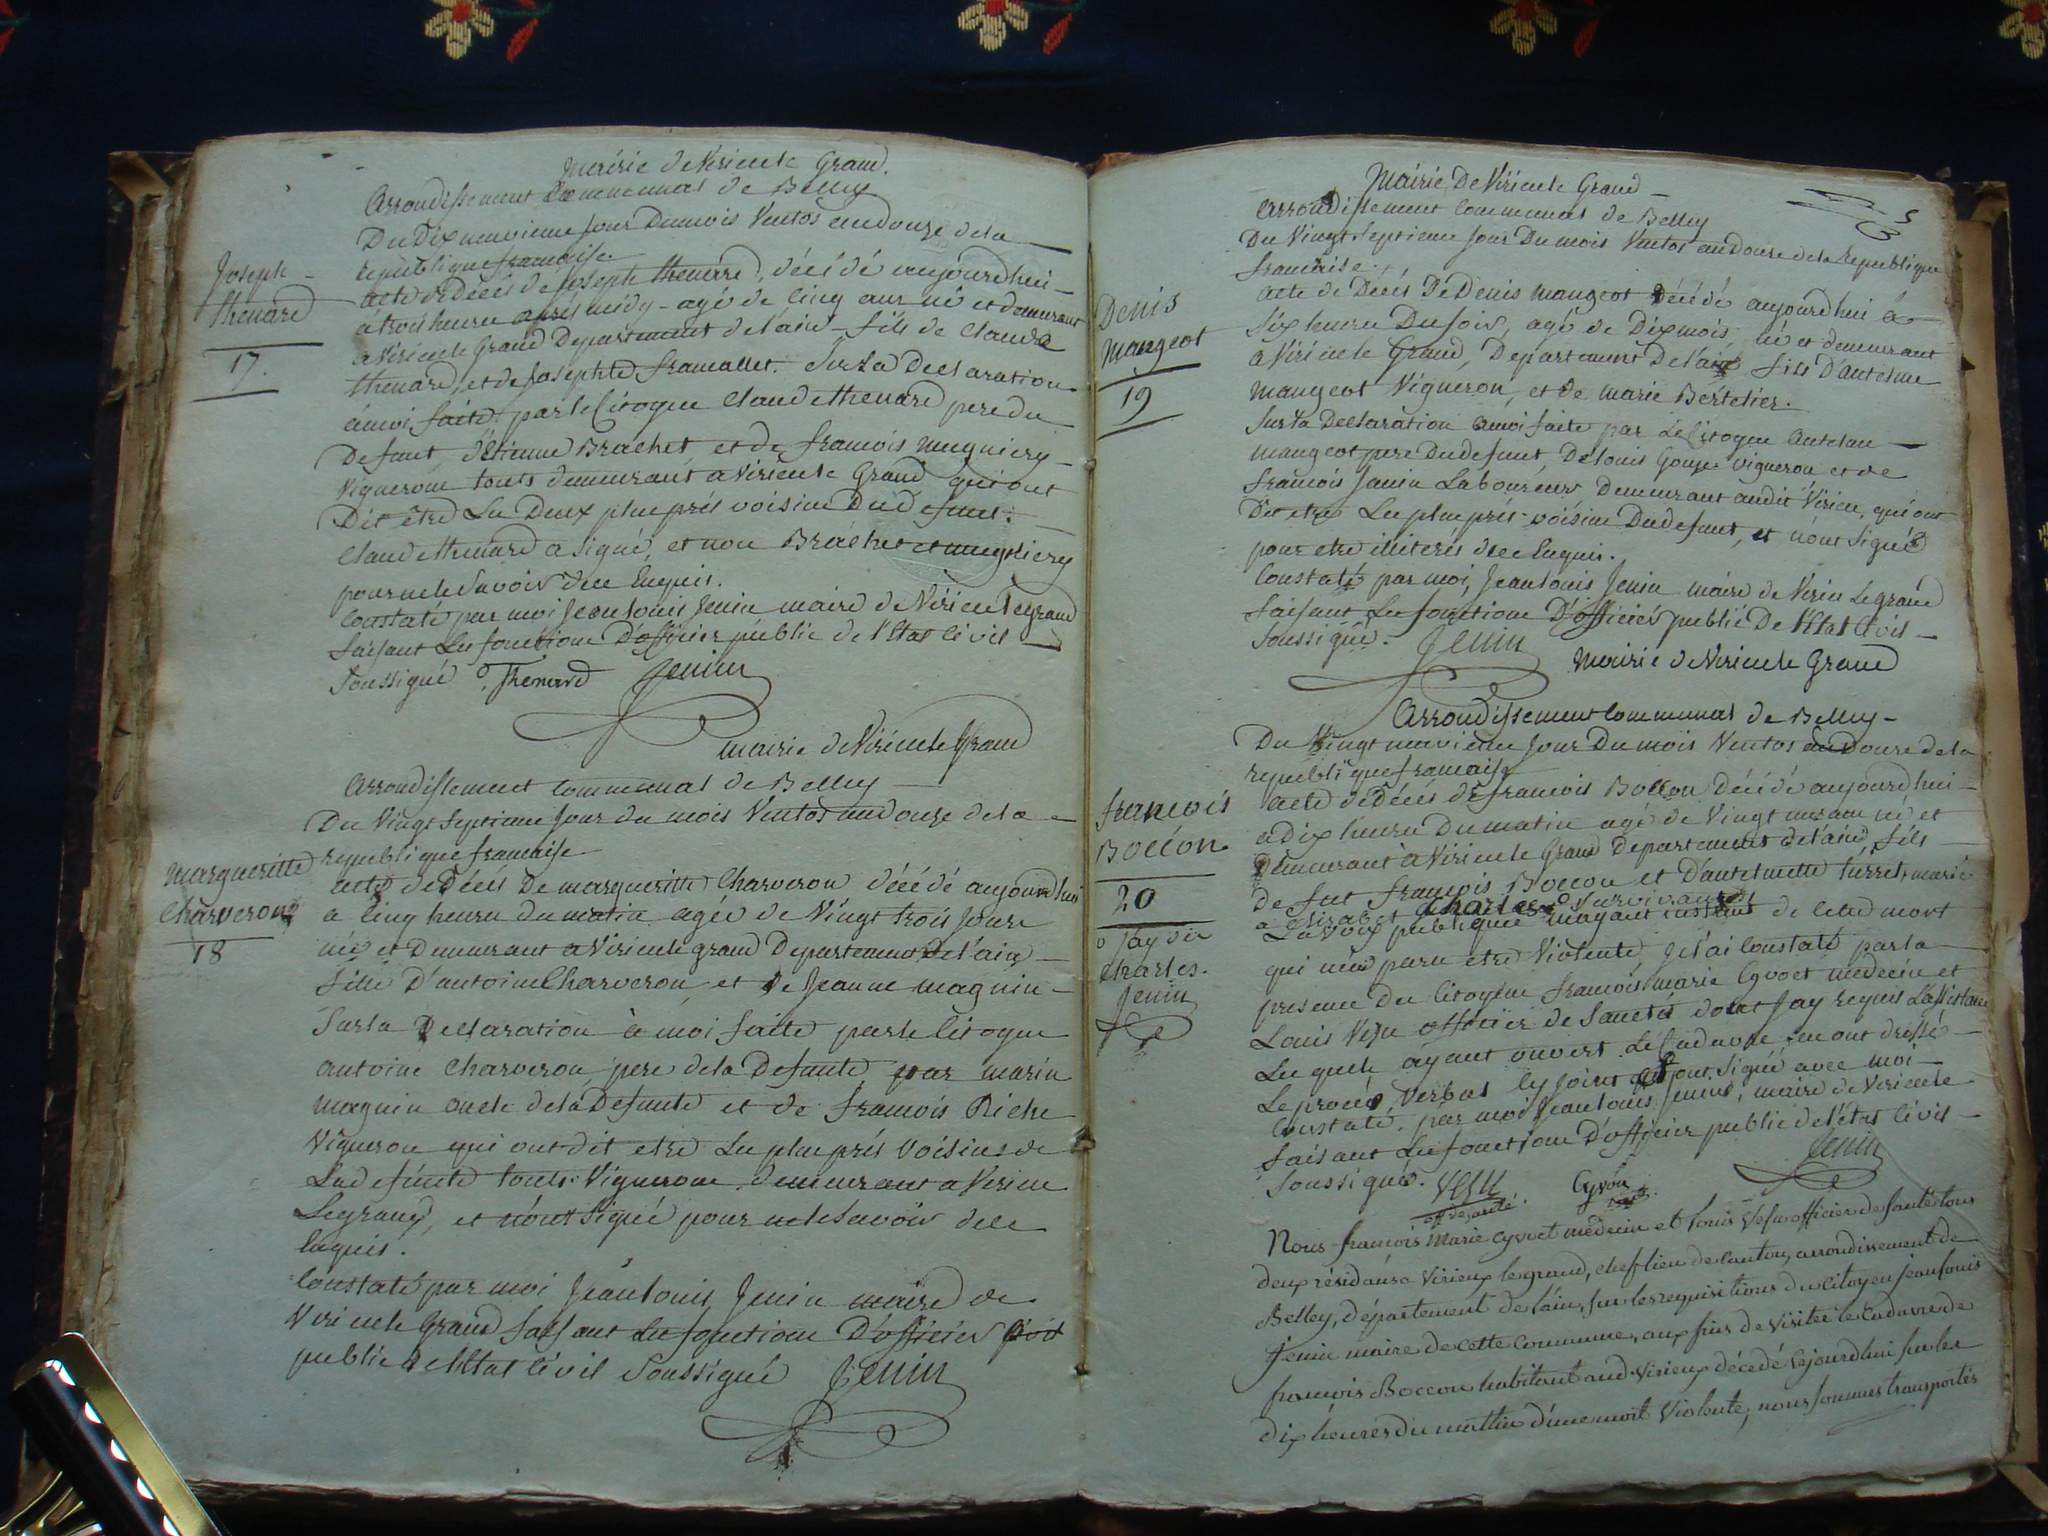 Mairie de Virieu le Grand.
Arrondissement Communal de Belley
Du Dix neuvieme Jour Du mois Ventos an douze de la
republique francaise.
Joseph
thenard
17.
acte de Décés de Joseph thenard, décédé aujourdhui
à trois heures après midy - agé de Cinq ans né et demeurant
a Virieu le Grand Departement de l'ain - fils de Claude
thenard, et de Josephte framallet. Sur La Declaration
à moi faite par le Citoyen Claude thenard pere du
Defunt, d'Etienne Brachet, et de francois mugniery
Vignerons touts demeurant a Virieu le Grand qui ont
Dit être Les Deux plus près voisins Du defunt.
Claude thenard a signé, et non Brachet et mugniery
pour ne le Savoir de ce Enquis.
Constaté par moi Jean Louis Jenin maire de Virieu le grand
faisant Les fonctions D'officier public de l'Etat Civil
Soussigné Thenard Jenin
mairie de Virieu le Grand
Arrondissement Communal de Belley
Du Vingt Septieme Jour du mois Ventos an douze de la
republique francaise
Margueritte
Charveron
18
acte de Décés De margueritte Charveron décédé aujourdhui
a Cinq heures du matin agée de Vingt trois Jours
née et Demeurant a Virieu le grand Departement de l'ain
fille D'antoine Charveron, et de Jeanne magnin
Sur la Declaration à moi faite par le Citoyen
antoine Charveron pere de la Defunte par marin
magnin oncle de la Defunte et de francois Riche
Vigneron qui ont dit etre Les plus près Voisins de
La defunte touts Vignerons demeurant a Virieu
Le grand, et n'ont Signé pour ne le Savoir de ce
Enquis.
Constaté par moi Jean Louis Jenin maire de
Virieu le Grand faisant Les fonctions D'officier
public de l'Etat Civil Soussigné Jenin
Mairie De Virieu le Grand
Arrondissement Communal de Belley
Du Vingt Septieme Jour Du mois Ventos an Douze de la Republique
francaise.
Denis
Mangeot
19
Acte de Décés De Denis Mangeot Décédé aujourdhui à
Six heures Du Soir, agé de Dix mois, né et demeurant
a Virieu le Grand, Departement De l'ain fils D'antelme
Mangeot Vigneron, et de Marie Bertelier.
Sur la Declaration a moi faite par Le Citoyen Antelme
Mangeot pere Du defunt, De Louis Gouje vigneron et de
francois Janin Laboureur, Demeurant audit Virieu, qui ont
Dit etre Les plus près voisins Du defunt, et n'ont Signé
pour etre illiterés de ce Enquis.
Constaté par moi, Jean Louis Jenin maire de Virieu Le grand
faisant Les fonctions D'officier public De l'Etat Civil
Soussigné. Jenin
Mairie de Virieu le Grand
Arrondissement Communal de Belley
Du Vingt neuvieme Jour Du mois Ventos an Douze de la
republique francaise
francois
Boccon
20
J'ay vu
Charles.
Jenin
acte de Décés de francois Boccon Décédé aujourdhui
a Dix heures Du matin agé de Vingt né et
Demeurant à Virieu le Grand Departement de l'ain, fils
De fut francois Boccon et D'antelmette turrel, marié
a Elizabet Charles Survivante
La Voix publique m'ayant instruit de Cette mort
qui m'a paru etre Violente, Je l'ai Constaté par la
presence du Citoyen francois marie Cyvoct medecin et
Louis Vesu officier de Santé dont J'ay requis L'assistance
Lesquels ayant ouvert Le Cadavre en ont dressé
Le procès Verbal Cy Joint et ont Signé avec moi
Constaté par moi Jean Louis Jenin, maire de Virieu le
faisant Les fonctions D'officier public de l'Etat Civil
Soussigné. Vesu Cyvoct Jenin
off. de santé.
Nous francois Marie Cyvoct médecin et Louis Vesu officier de Santé tous
deux résidans a Virieux le grand, chef lieu de Canton, arrondissement de
Belley, département de l'ain, sur les requisitions du Citoyen Jean Louis
Jenin maire de cette Commune, aux fins de Visiter le Cadavre de
francois Boccon habitant aud. Virieux décédé cejourdhui sur les
dix heures du mattin d'une mort Violente, nous sommes transportés